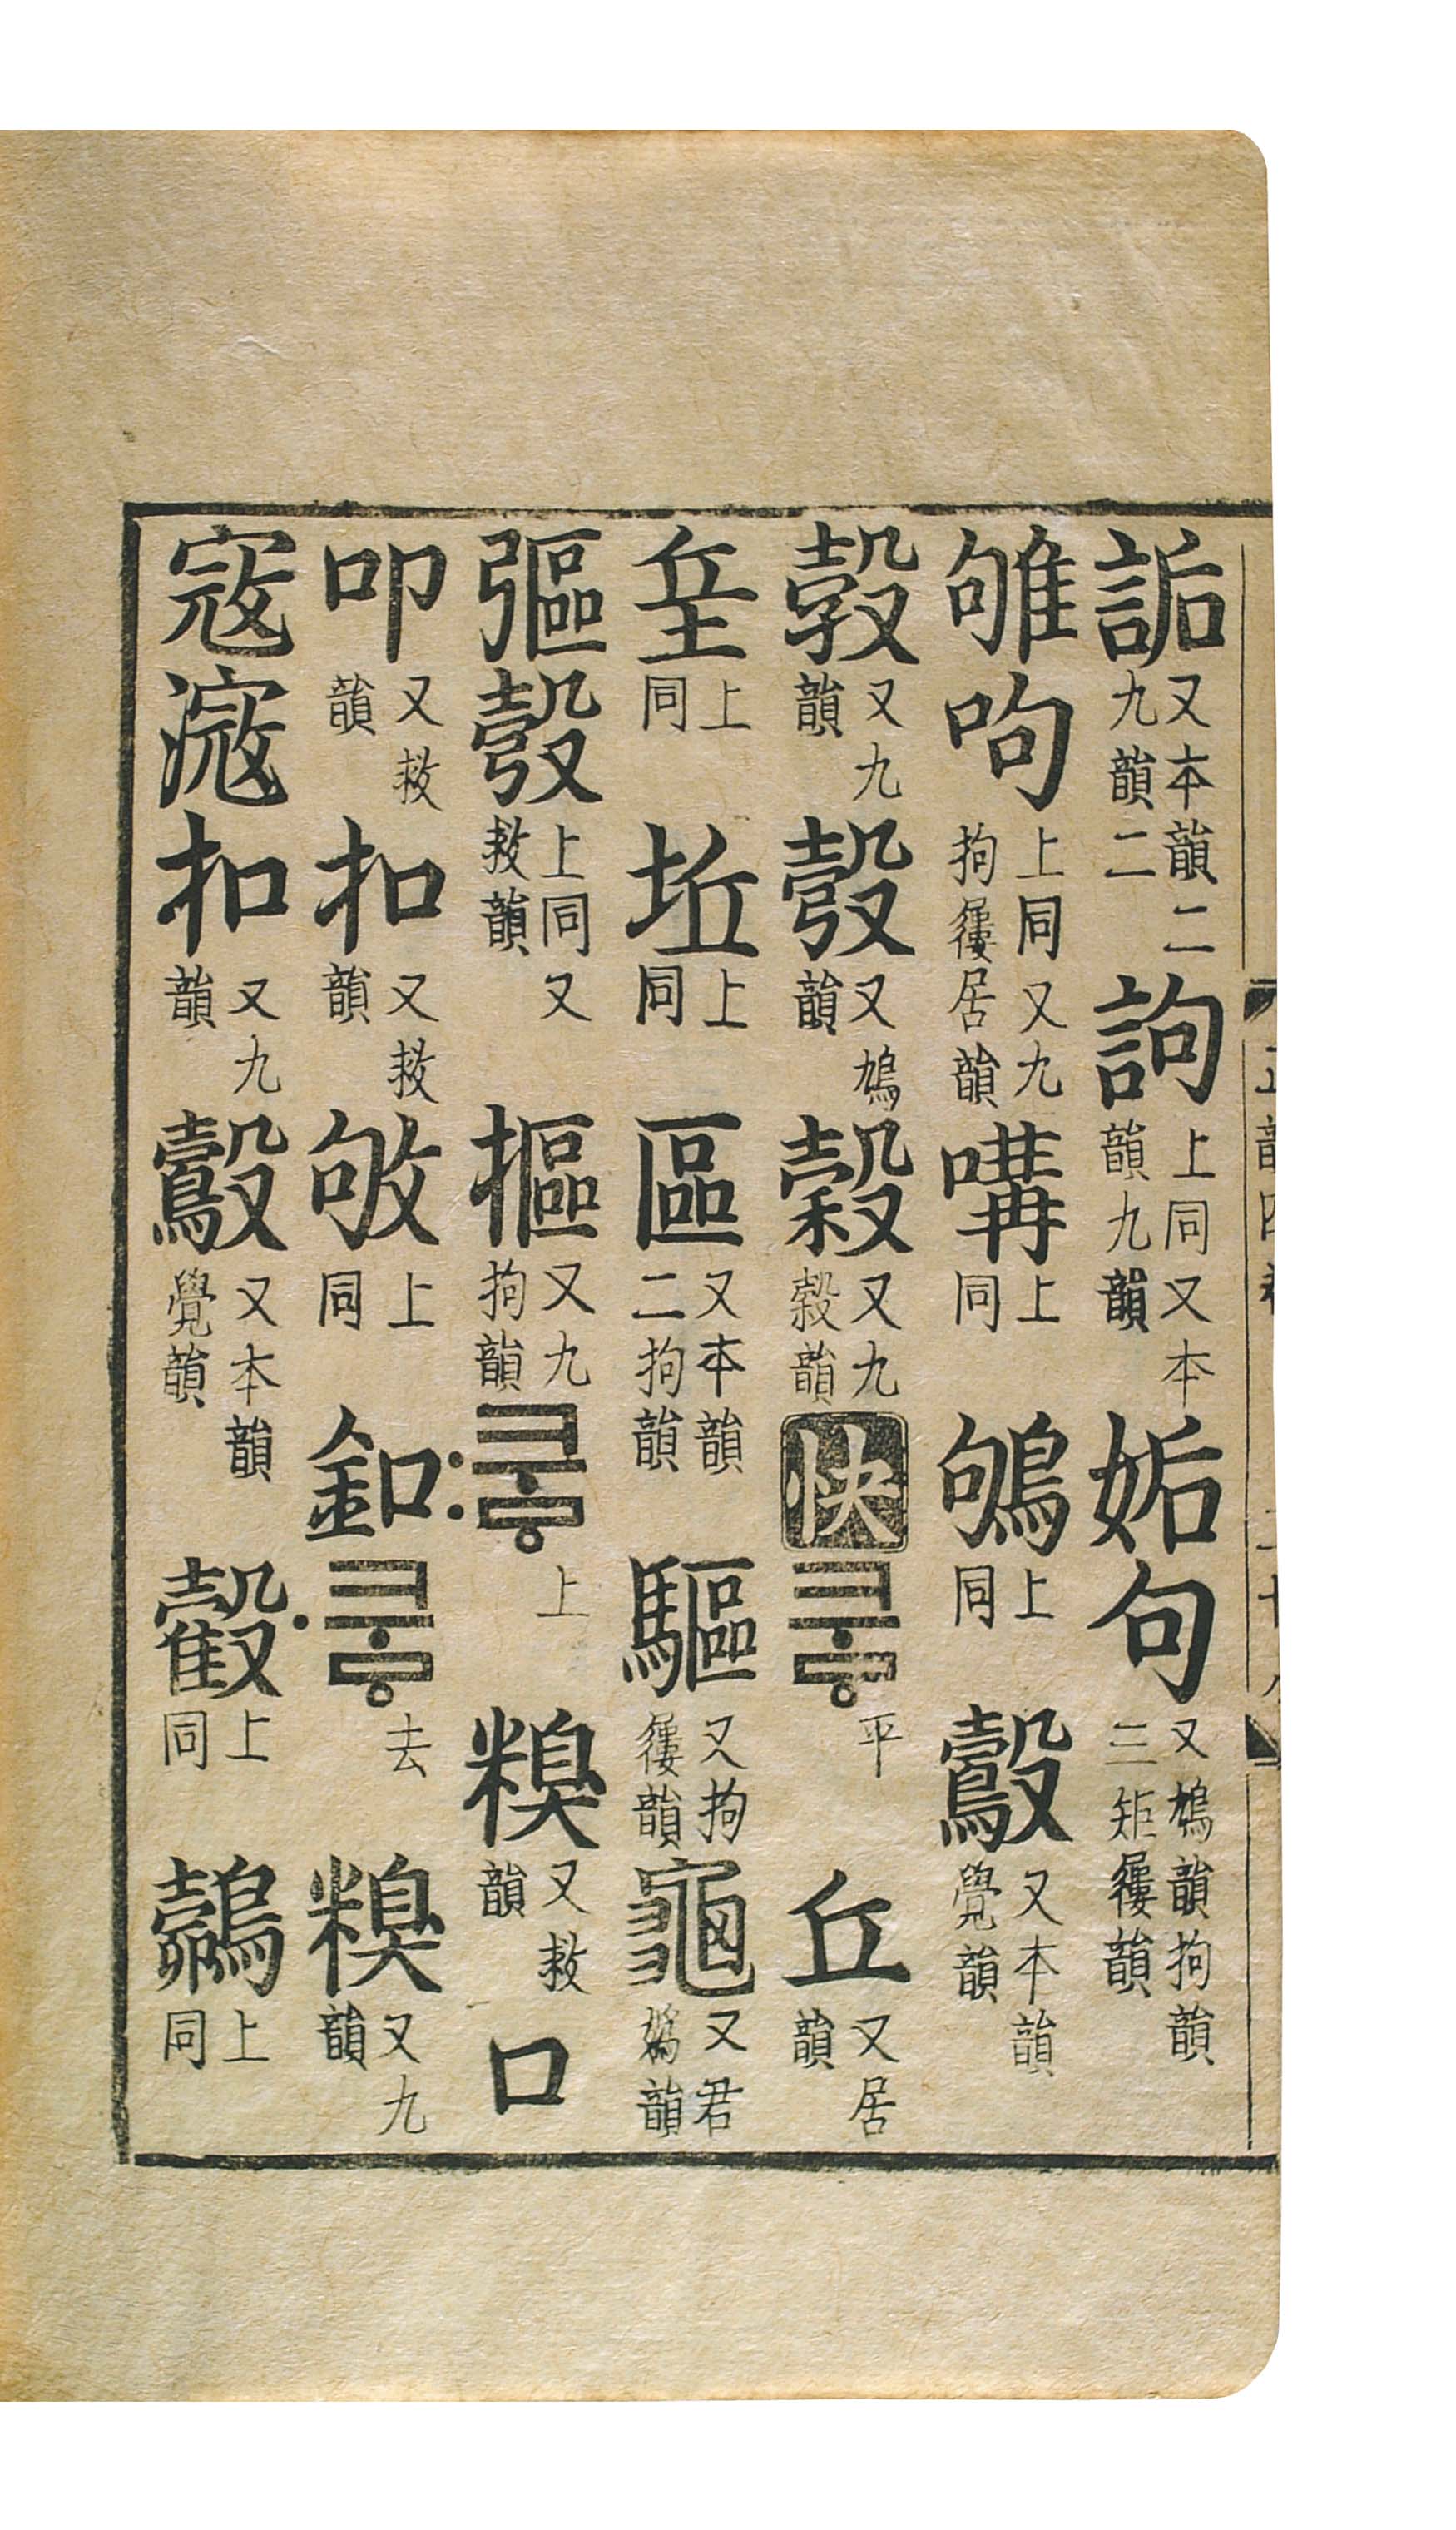 詬又本韻二九韻二詢上同又本韻九韻姤句又鳩韻拘韻三矩屨韻
雊呴上同又九拘屨居韻嘪上同鴝上同鷇又本韻覺韻
㝅又九韻彀又鳩韻穀又九穀韻快쿻平丘又居韻
坴上同坵上同區又本韻二拘韻驅又拘屨韻龜又君鳩韻
彄彀上同又救韻摳又九拘韻:쿻上糗又救韻口
叩又救韻扣又救韻敂上同釦:쿻去糗又九韻
寇滱扣又九韻鷇又本韻覺韻上同上同